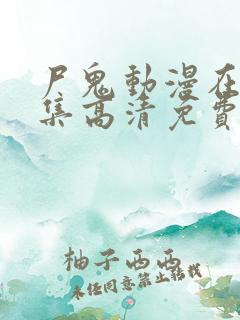 尸鬼動漫在
集高清免費
柚子西西
未經同意禁止轉載